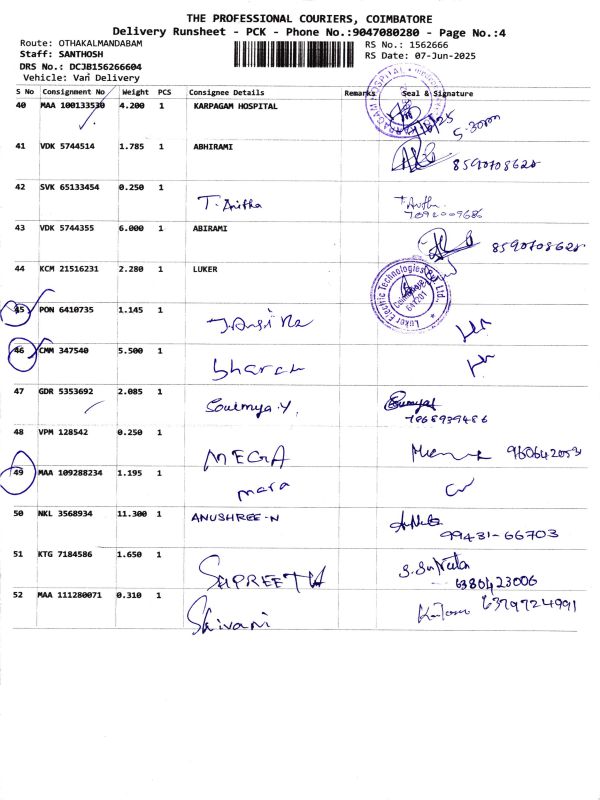 THE PROFESSIONAL COURIERS, COIMBATORE
Delivery Runsheet - PCK - Phone No.:9047080280 - Page No.:4
Route: OTHAKALMANDABAM RS No.: 1562666
Staff: SANTHOSH RS Date: 07-Jun-2025
DRS No.: DCJB156266604
Vehicle: Van Delivery
S No Consignment No Weight PCS Consignee Details Remarks Seal & Signature
40 MAA 100133530 4.200 1 KARPAGAM HOSPITAL
5.30pm
41 VDK 5744514 1.785 1 ABHIRAMI
8590708628
42 SVK 65133454 0.250 1
T. Anitha
7092009686
43 VDK 5744355 6.000 1 ABIRAMI
8590708628
44 KCM 21516231 2.280 1 LUKER
Luker Electric Technologies Pvt. Ltd.
45 PON 6410735 1.145 1
46 CMM 347540 5.500 1
bharath
47 GDR 5353692 2.085 1
Soumya.Y
48 VPM 128542 0.250 1
MEGA
49 MAA 109288234 1.195 1
mara
50 NKL 3568934 11.300 1 ANUSHREE-N
99431-66703
51 KTG 7184586 1.650 1
6380423006
52 MAA 111280071 0.310 1
Shivani 6379724991